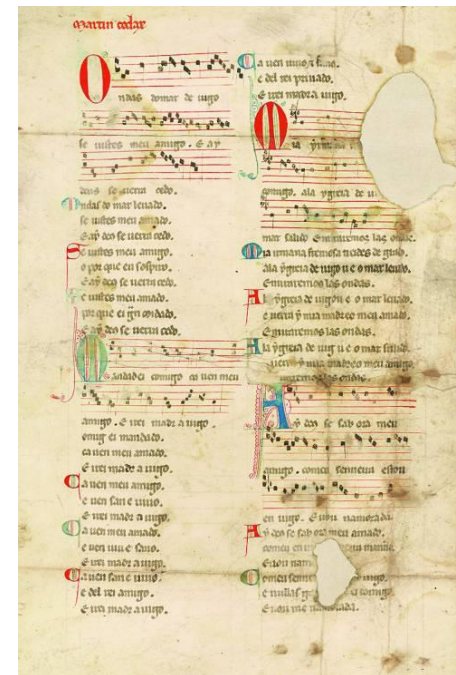 martin codax
Ondas do mar de uigo
se uistes meu amigo. E ay
deus se uerra cedo.
Ondas do mar leuado.
se uistes meu amado.
E ay deus se uerra cedo.
Se uistes meu amigo.
o por que eu sospiro.
E ay deus se uerra cedo.
Se uistes meu amado.
por que ei gran coidado.
E ay deus se uerra cedo.
Mandad ei comigo ca uen meu
amigo. E irei madr a uigo.
comig ei mandado.
ca uen meu amado.
E irei madr a uigo.
Ca uen meu amigo.
e uen san e uiuo.
E irei madr a uigo.
Ca uen meu amado.
e uen uiu e sano.
E irei madr a uigo.
Ca uen san e uiuo.
e del rei amigo.
E irei madr a uigo.
Ca uen uiuo e sano.
e del rei priuado.
E irei madr a uigo.
Mia
comigo. ala ygreia de ui
mar salido E miraremos las ondas.
Mia irmana fremosa treides de grado.
ala ygreia de uigo u e o mar leuado.
E miraremos las ondas.
Ala ygreia de uigo u e o mar leuado.
e uerra y mia madre e o meu amado.
E miraremos las ondas.
Ala ygreia de uig u e o mar salido.
uerra y mia madre e o meu amigo
miraremos las ondas.
Ay deus se sab ora meu
amigo. com eu senneira estou
en uigo. E uou namorada.
Ay deus se sab ora meu amado.
com eu en
E uou nam
Com eu senn uigo.
e nullas comigo.
E uou namorada.